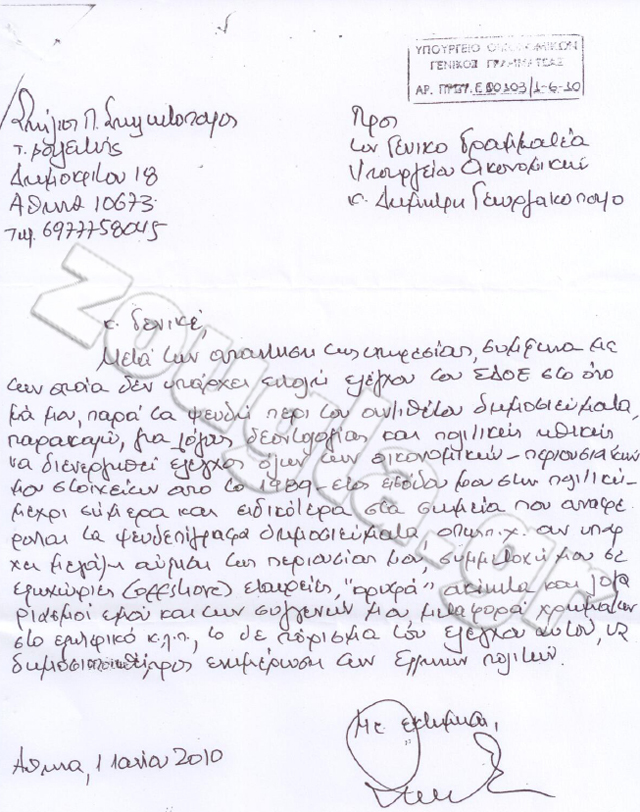 ΥΠΟΥΡΓΕΙΟ ΟΙΚΟΝΟΜΙΚΩΝ
ΓΕΝΙΚΟΣ ΓΡΑΜΜΑΤΕΑΣ
ΑΡ. ΠΡΩΤ. Ε 1-6-10
Σπήλιος Π. Σπηλιωτόπουλος
τ. βουλευτής
Δημοκρίτου 18
Αθήνα 10673
Τηλ. 6977758045
Προς
τον Γενικό Γραμματέα
Υπουργείου Οικονομικών
κ. Δημήτρη Γεωργακόπουλο
κ. Γενικέ,
Μετά την απάντηση της υπηρεσίας, σύμφωνα με
την οποία δεν υπάρχει εντολή ελέγχου του ΣΔΟΕ στο όνο
μά μου, παρά τα ψευδή περί του αντιθέτου δημοσιεύματα,
παρακαλώ, για λόγους δεοντολογίας και πολιτικής ηθικής
να διενεργηθεί έλεγχος όλων των οικονομικών - περιουσιακών
μου στοιχείων από το 1989 - έτος εισόδου μου στην πολιτική -
μέχρι σήμερα και ειδικότερα στα σημεία που αναφέ
ρονται τα ψευδεπίγραφα δημοσιεύματα, όπως π.χ. αν υπάρ
χει μεγάλη αύξηση της περιουσίας μου, συμμετοχή μου σε
εξωχώριες (offshore) εταιρείες, "κρυφά" ακίνητα και λογα
ριασμοί εμού και των συγγενών μου, μεταφορά χρημάτων
στο εξωτερικό κ.λ.π., το δε πόρισμα του ελέγχου αυτού, να
δημοσιοποιηθεί, προς ενημέρωση των Ελλήνων πολιτών.
Με εκτίμηση,
Αθήνα, 1 Ιουνίου 2010
zougla.gr